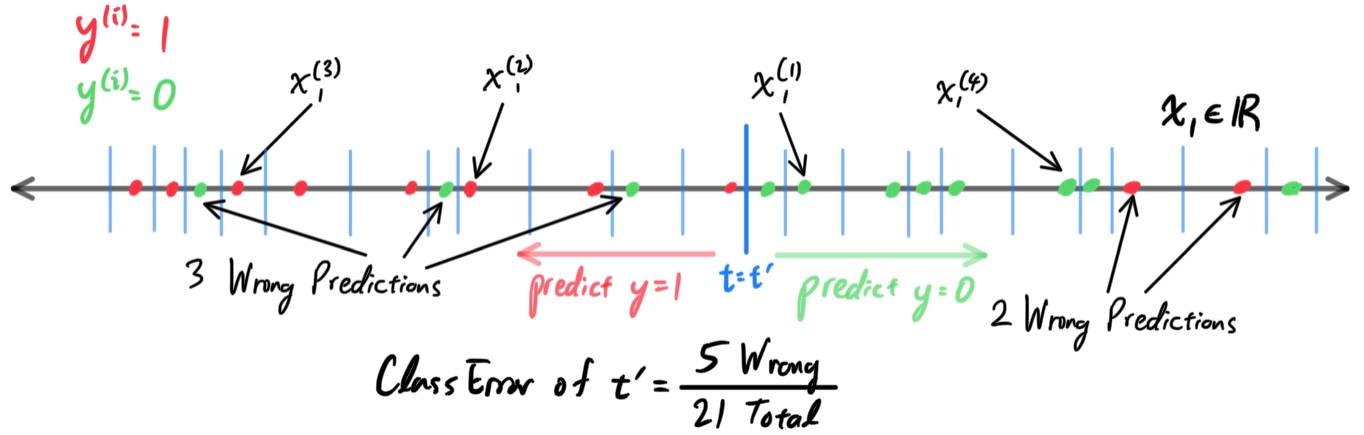 y⁽ⁱ⁾= 1
y⁽ⁱ⁾= 0
x₁⁽³⁾
x₁⁽²⁾
x₁⁽¹⁾
x₁⁽⁴⁾
x₁ ∈ ℝ
3 Wrong Predictions
predict y=1
t=t′
predict y=0
2 Wrong Predictions
Class Error of t′ =
5 Wrong
21 Total